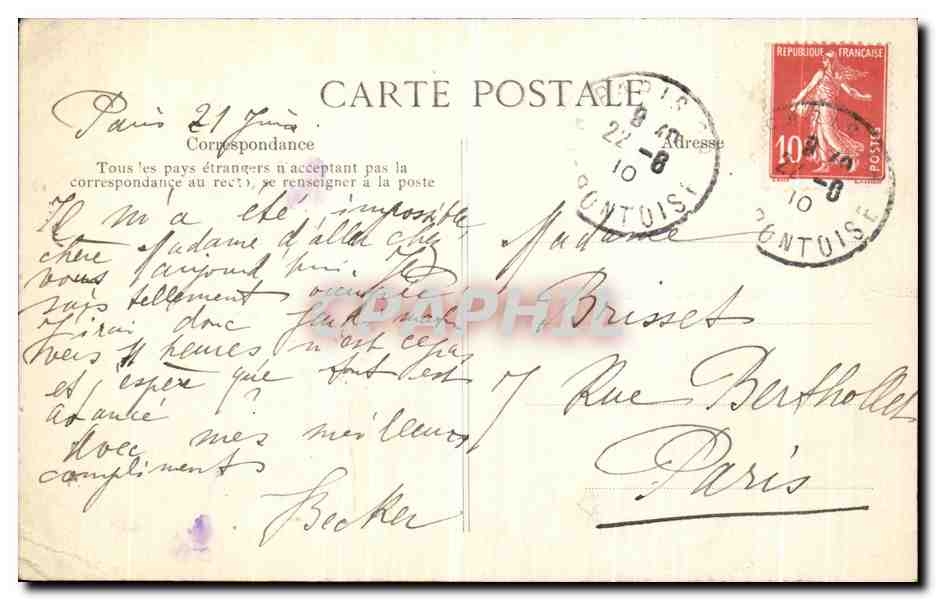 CARTE POSTALE
Paris 21 Juin
Correspondance
Tous les pays étrangers n'acceptant pas la
correspondance au recto, se renseigner à la poste
Il m'a été impossible
chère Madame d'aller chez
vous aujourd'hui. Je
suis tellement occupée
J'irai donc jeudi matin
vers 11 heures n'est ce pas
et j'espère que tout est
avancé ?
Avec mes meilleurs
compliments
Becker
Adresse
Madame
Brisset
7 Rue Berthollet
Paris
REPUBLIQUE FRANÇAISE
10
POSTES
PARIS
22 -6
10
PONTOISE
PARIS
22
10
PONTOISE
PAPHIL